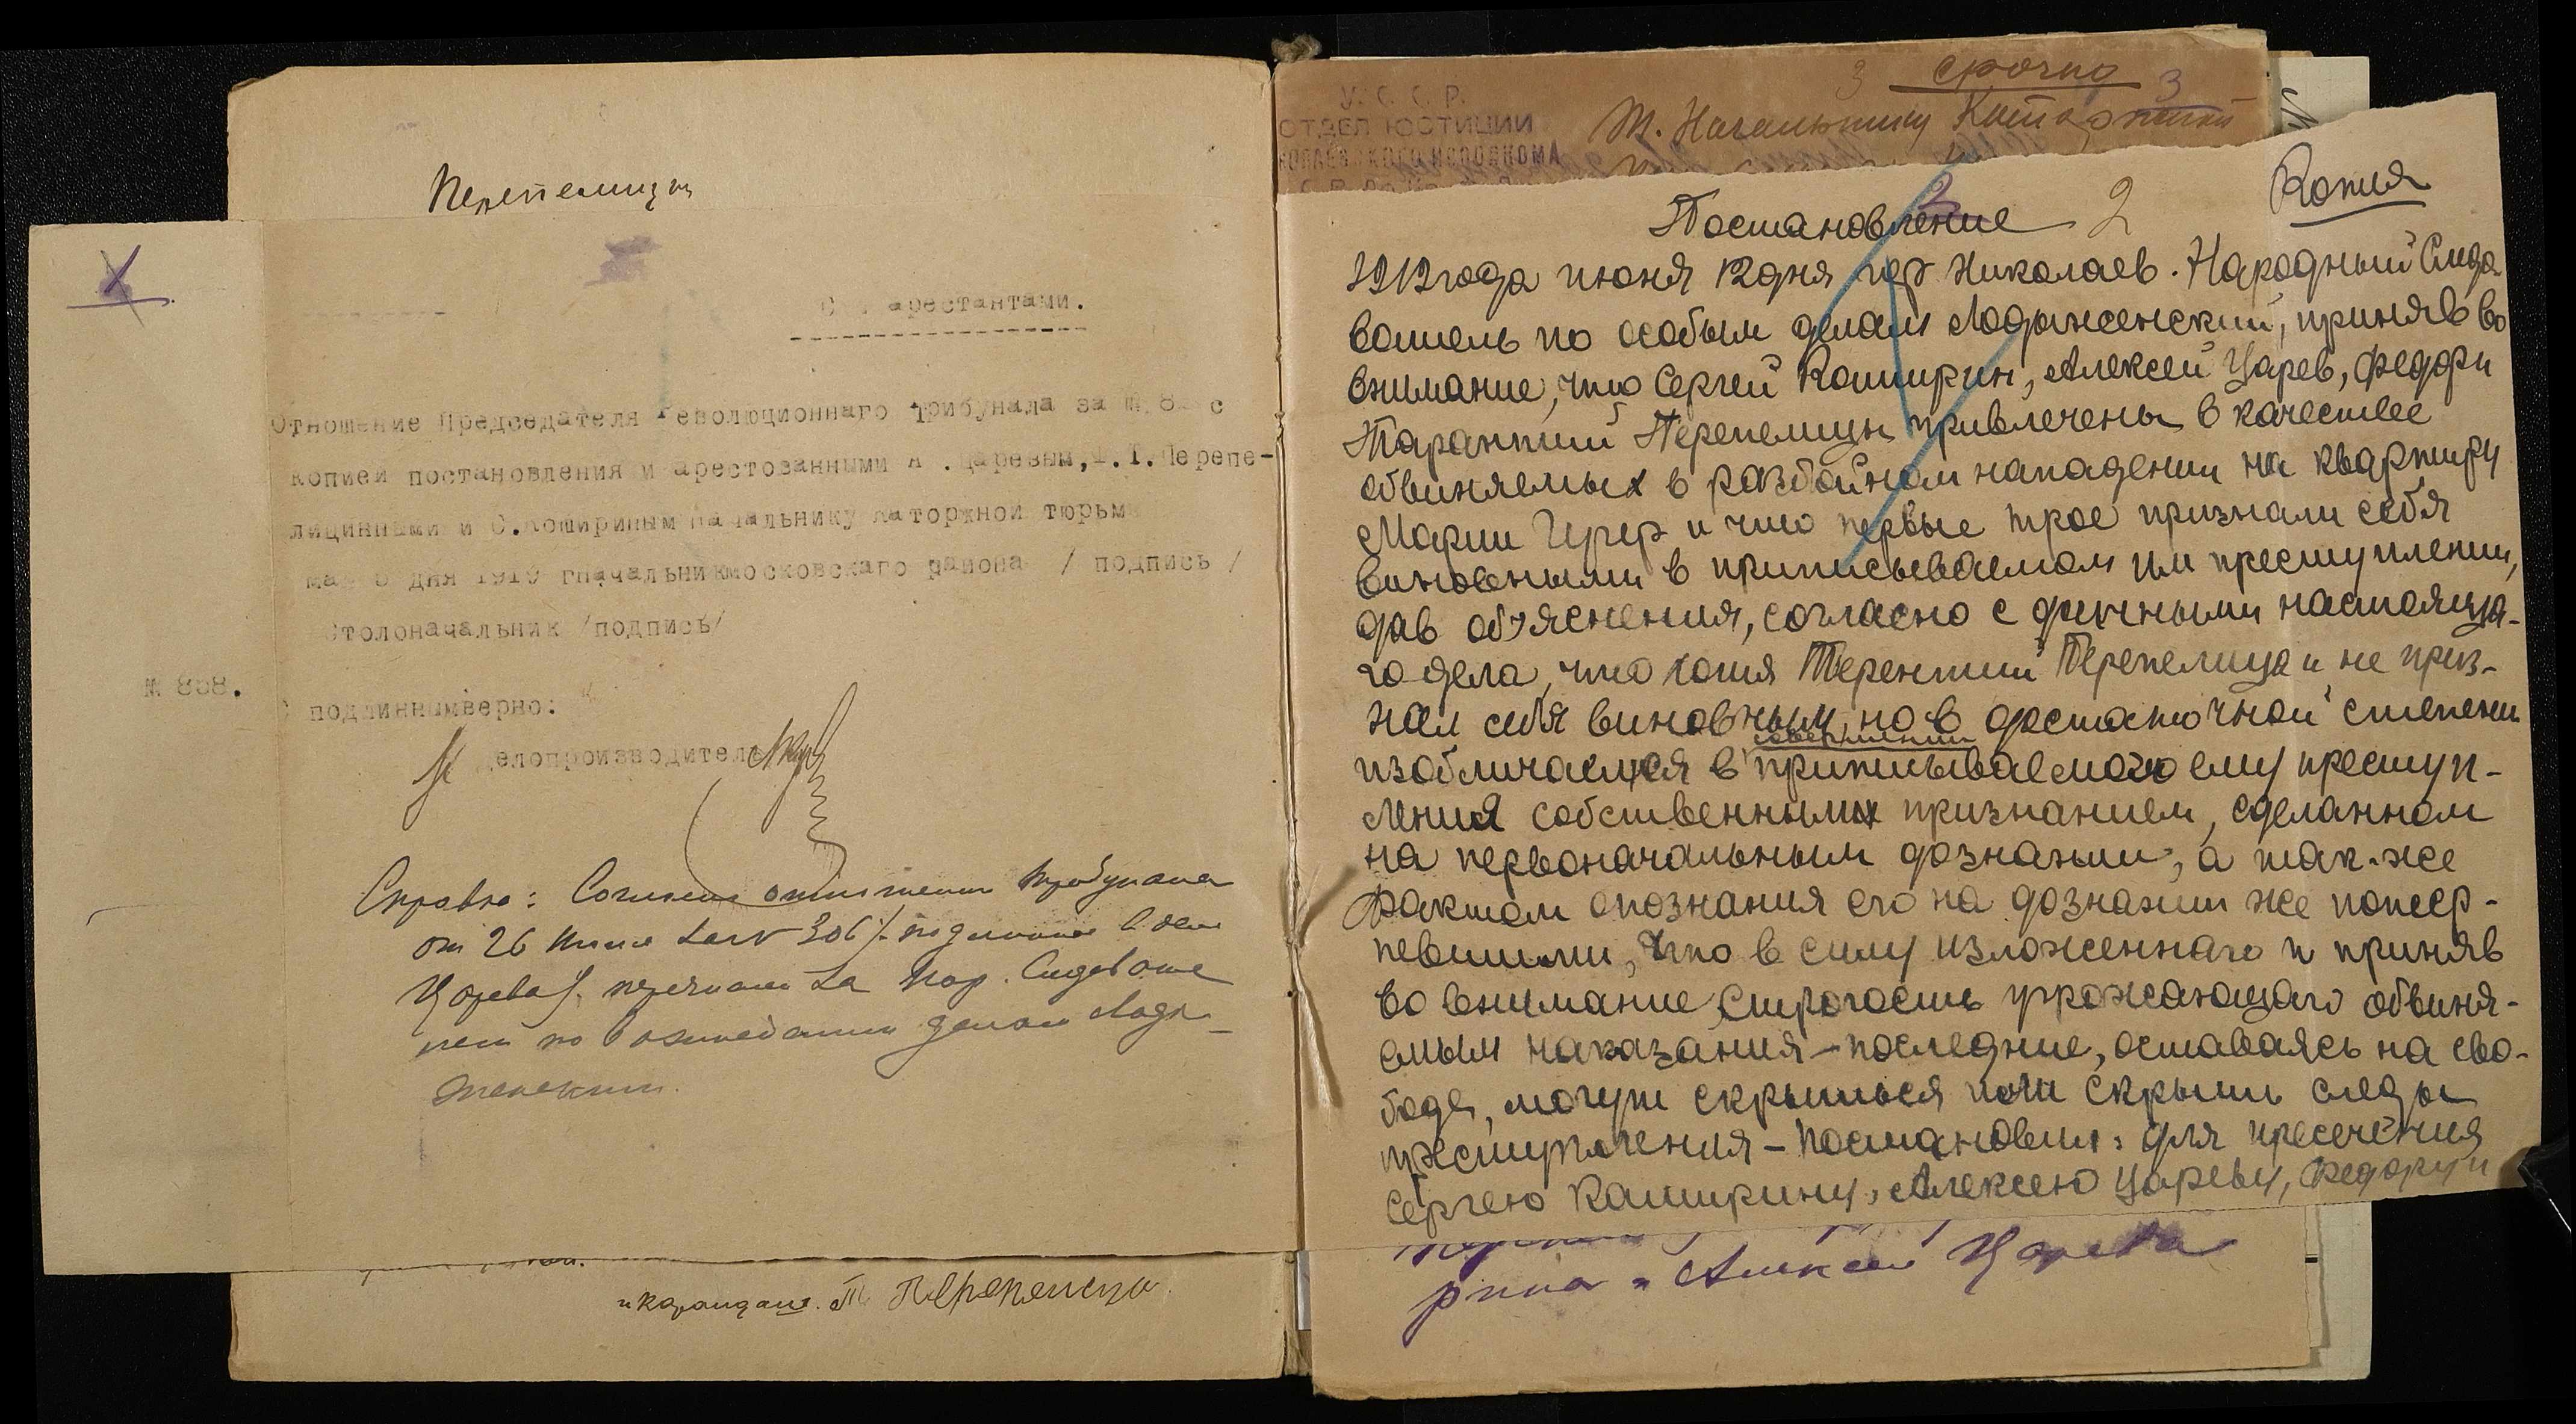 Перепелицы
С арестантами.
Отношение Председателя Революционнаго Трибунала за № 8 с
копией постановления и арестованными А. Царевым, Ф.Т. Перепе-
лициными и С. Кошириным Начальнику Каторжной тюрьм
мая 5 дня 1919 г. Начальник Московскаго района / подпись /
Столоначальник /подпись/
№ 868.
С подлинным верно:
делопроизводитель
Справка: Согласно отношения Трибунала
от 26 июня за № 306
Царева перечислен за Нар. Следовате
лем по делам Лоды-
женским.
и карандаш. Т Перепелицы
У. С. С. Р.
ОТДЕЛ ЮСТИЦИИ
НИКОЛАЕВСКОГО ИСПОЛКОМА
3 срочно 3
Т. Начальнику Каторжной
Копия
Постановление 2
1919 года июня 12 дня гор Николаев. Народный Следо-
ватель по особым делам Лодыженский, приняв во
внимание, что Сергей Кошкирин, Алексей Царев, Федор и
Тарантий Перепелицы привлечены в качестве
обвиняемых в разбойном нападении на квартиру
Марии и что первые трое признали себя
виновными в приписываемом им преступлении,
дав объяснения, согласно с данными настояща-
го дела, что хотя Терентий Перепелица и не приз-
нал себя виновным, но в достаточной степени
совершении
изобличается в приписываемого ему преступ-
ления собственным признанием, сделанном
на первоначальным дознании, а так-же
фактом опознания его на дознании же потер-
певшими, что в силу изложеннаго и приняв
во внимание, строгость угрожающаго обвиня-
емым наказания – последние, оставаясь на сво-
боде, могут скрыться или скрыть следы
преступления – постановил: для пресечения
Сергею Каширину, Алексею Цареву, Федору и
рина и Алексея Царева